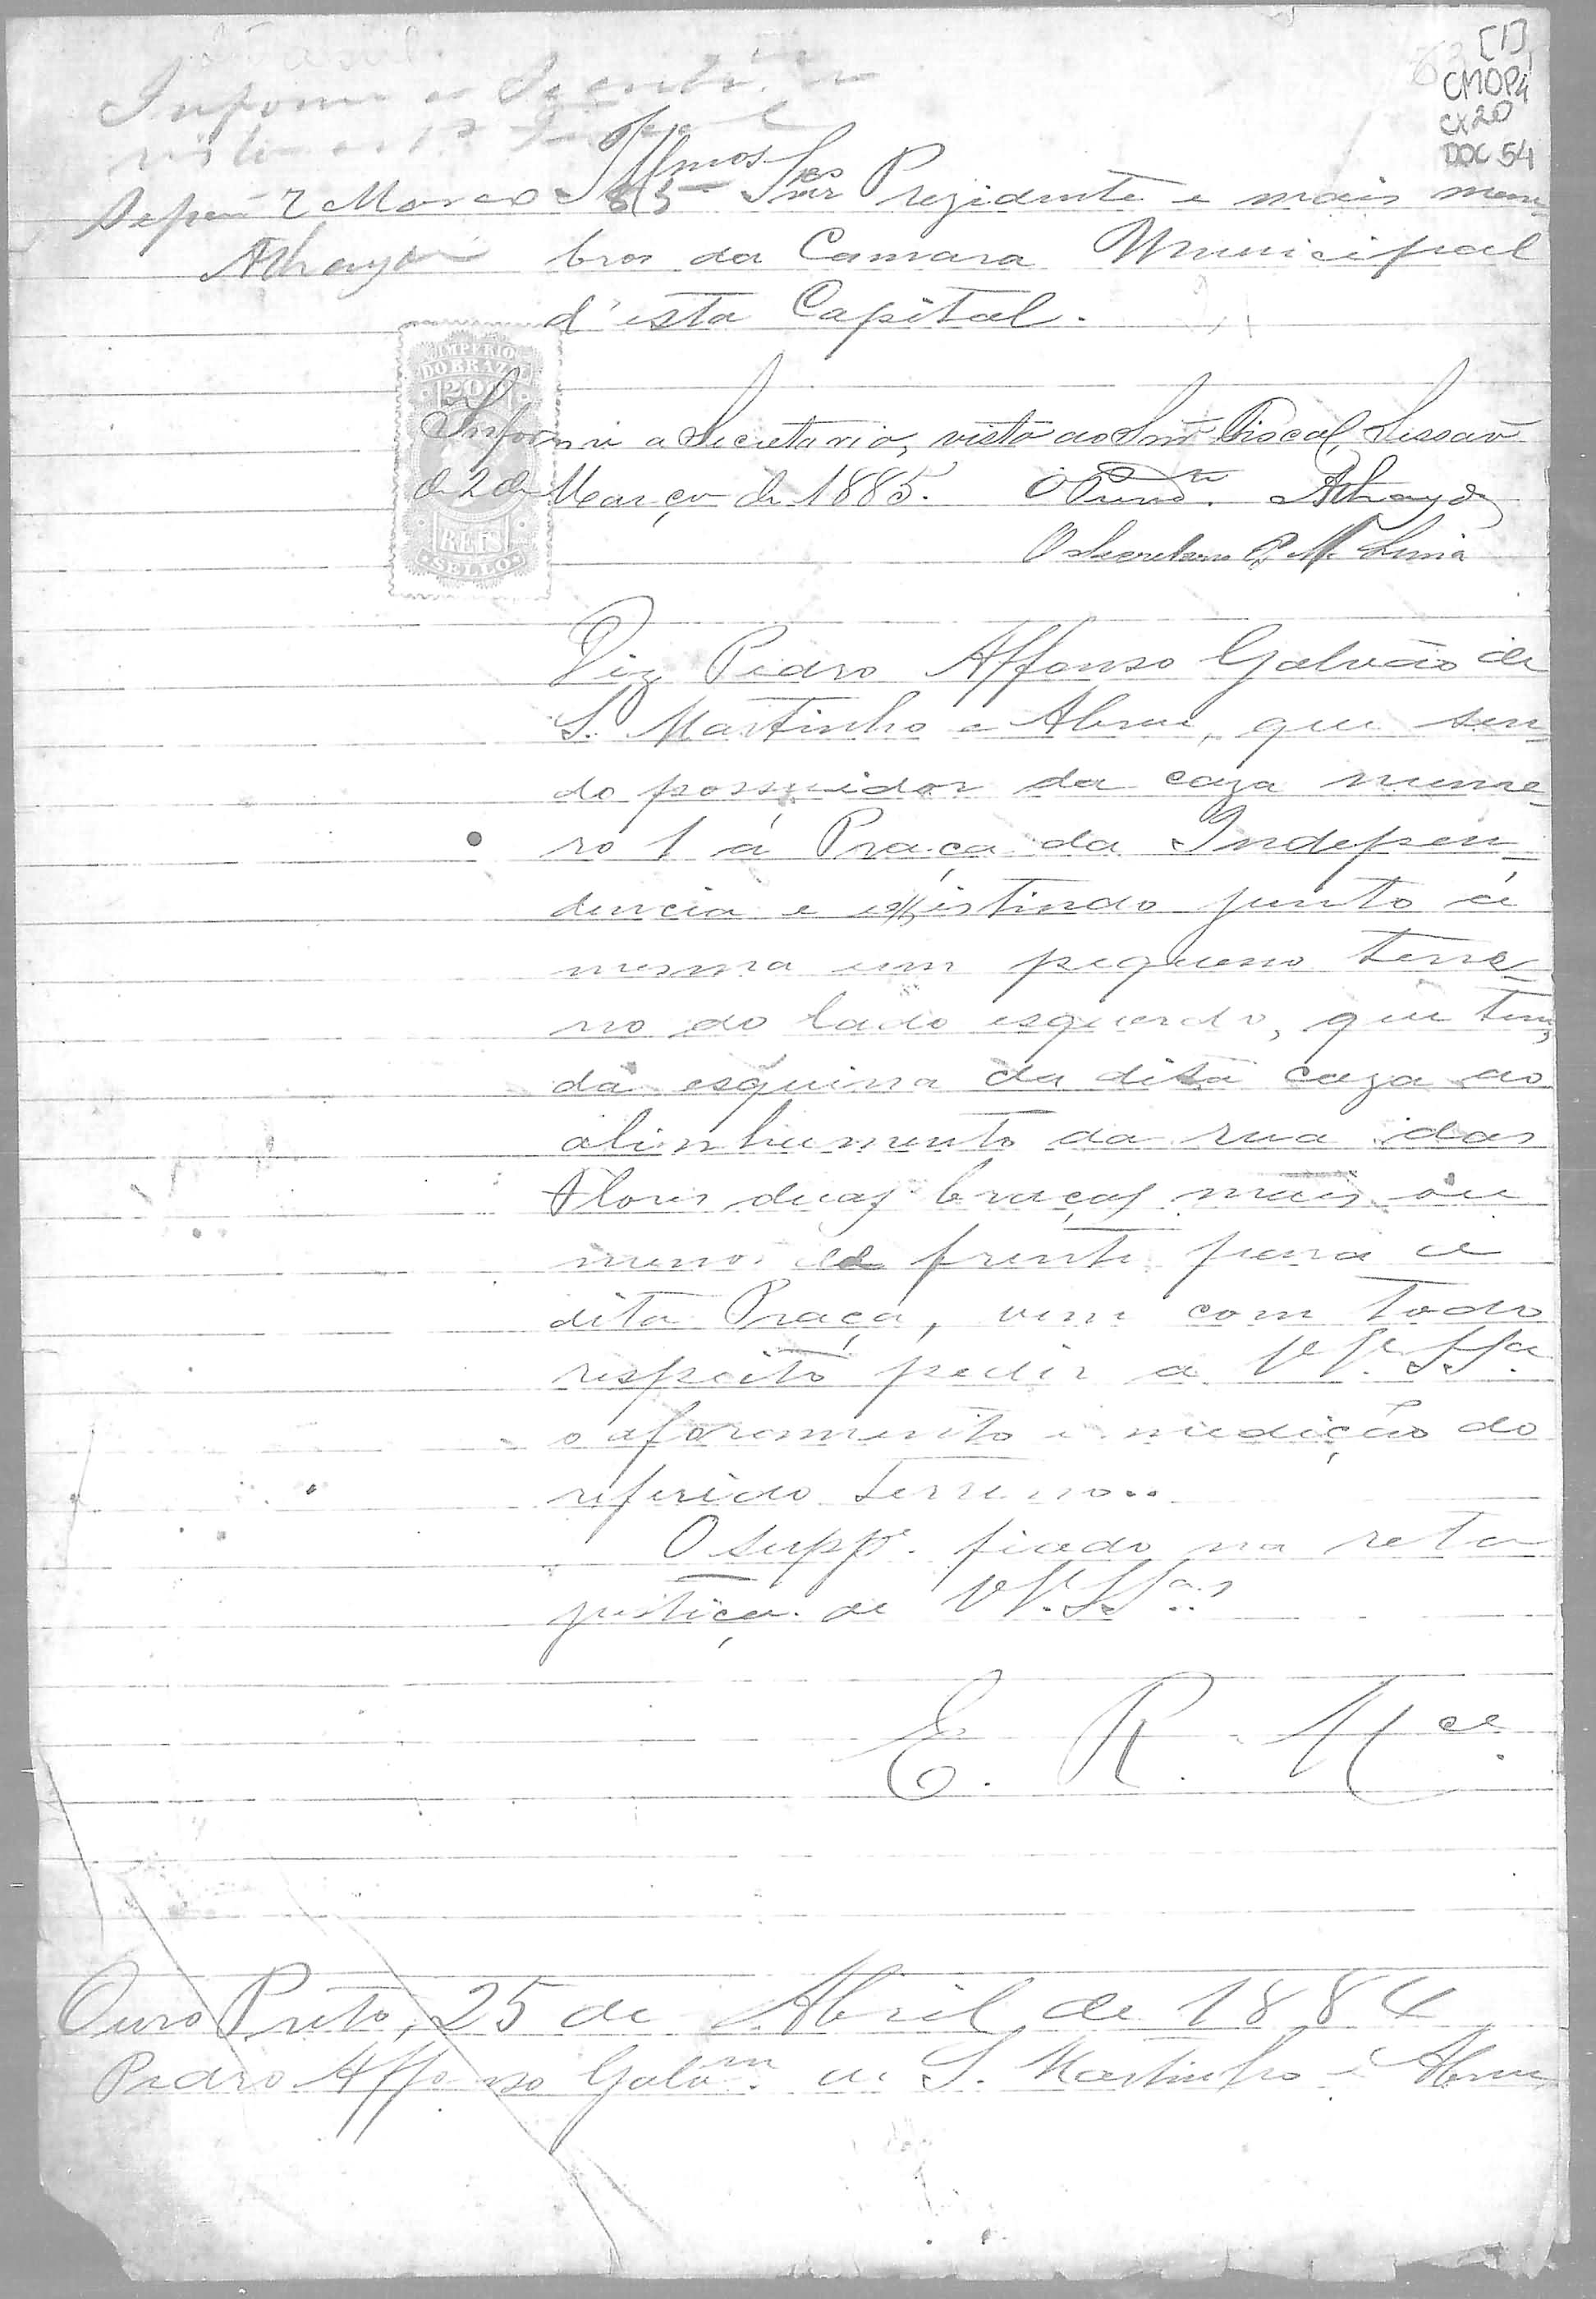 [1]
CMOP4
CX20
DOC 54
Informe a Secretria
visto ao Fiscal
2 Março 85
Athayde
Illmos Snres Prezidente e mais mem-
bros da Camara Municipal
d'esta Capital.
IMPERIO
DO BRAZIL
200
REIS
SELLO
Informe a Secretaria, visto ao Snr Fiscal, Sessão
de 2 de Março de 1885. O Presid.te Athayde
O Secretario P. M.
Diz Pedro Affonso Galvão de
S. Martinho e Abreu, que sen-
do possuidor da caza nume-
ro 1 á Praça da Indepen-
dencia e existindo junto á
mesma um pequeno terre-
no do lado esquerdo, que tem,
da esquina da dita caza ao
alinhamento da rua das
Flores duas braças mais ou
menos de frente para a
dita Praça, vem com todo
respeito pedir a VV. SSas
o aforamento e medição do
referido terreno..
O suppe. fiado na reta
justiça de VV. SSas
E. R. Mce.
Ouro Preto, 25 de Abril de 1884
Pedro Affonso Galvm. de S. Martinho e Abreu